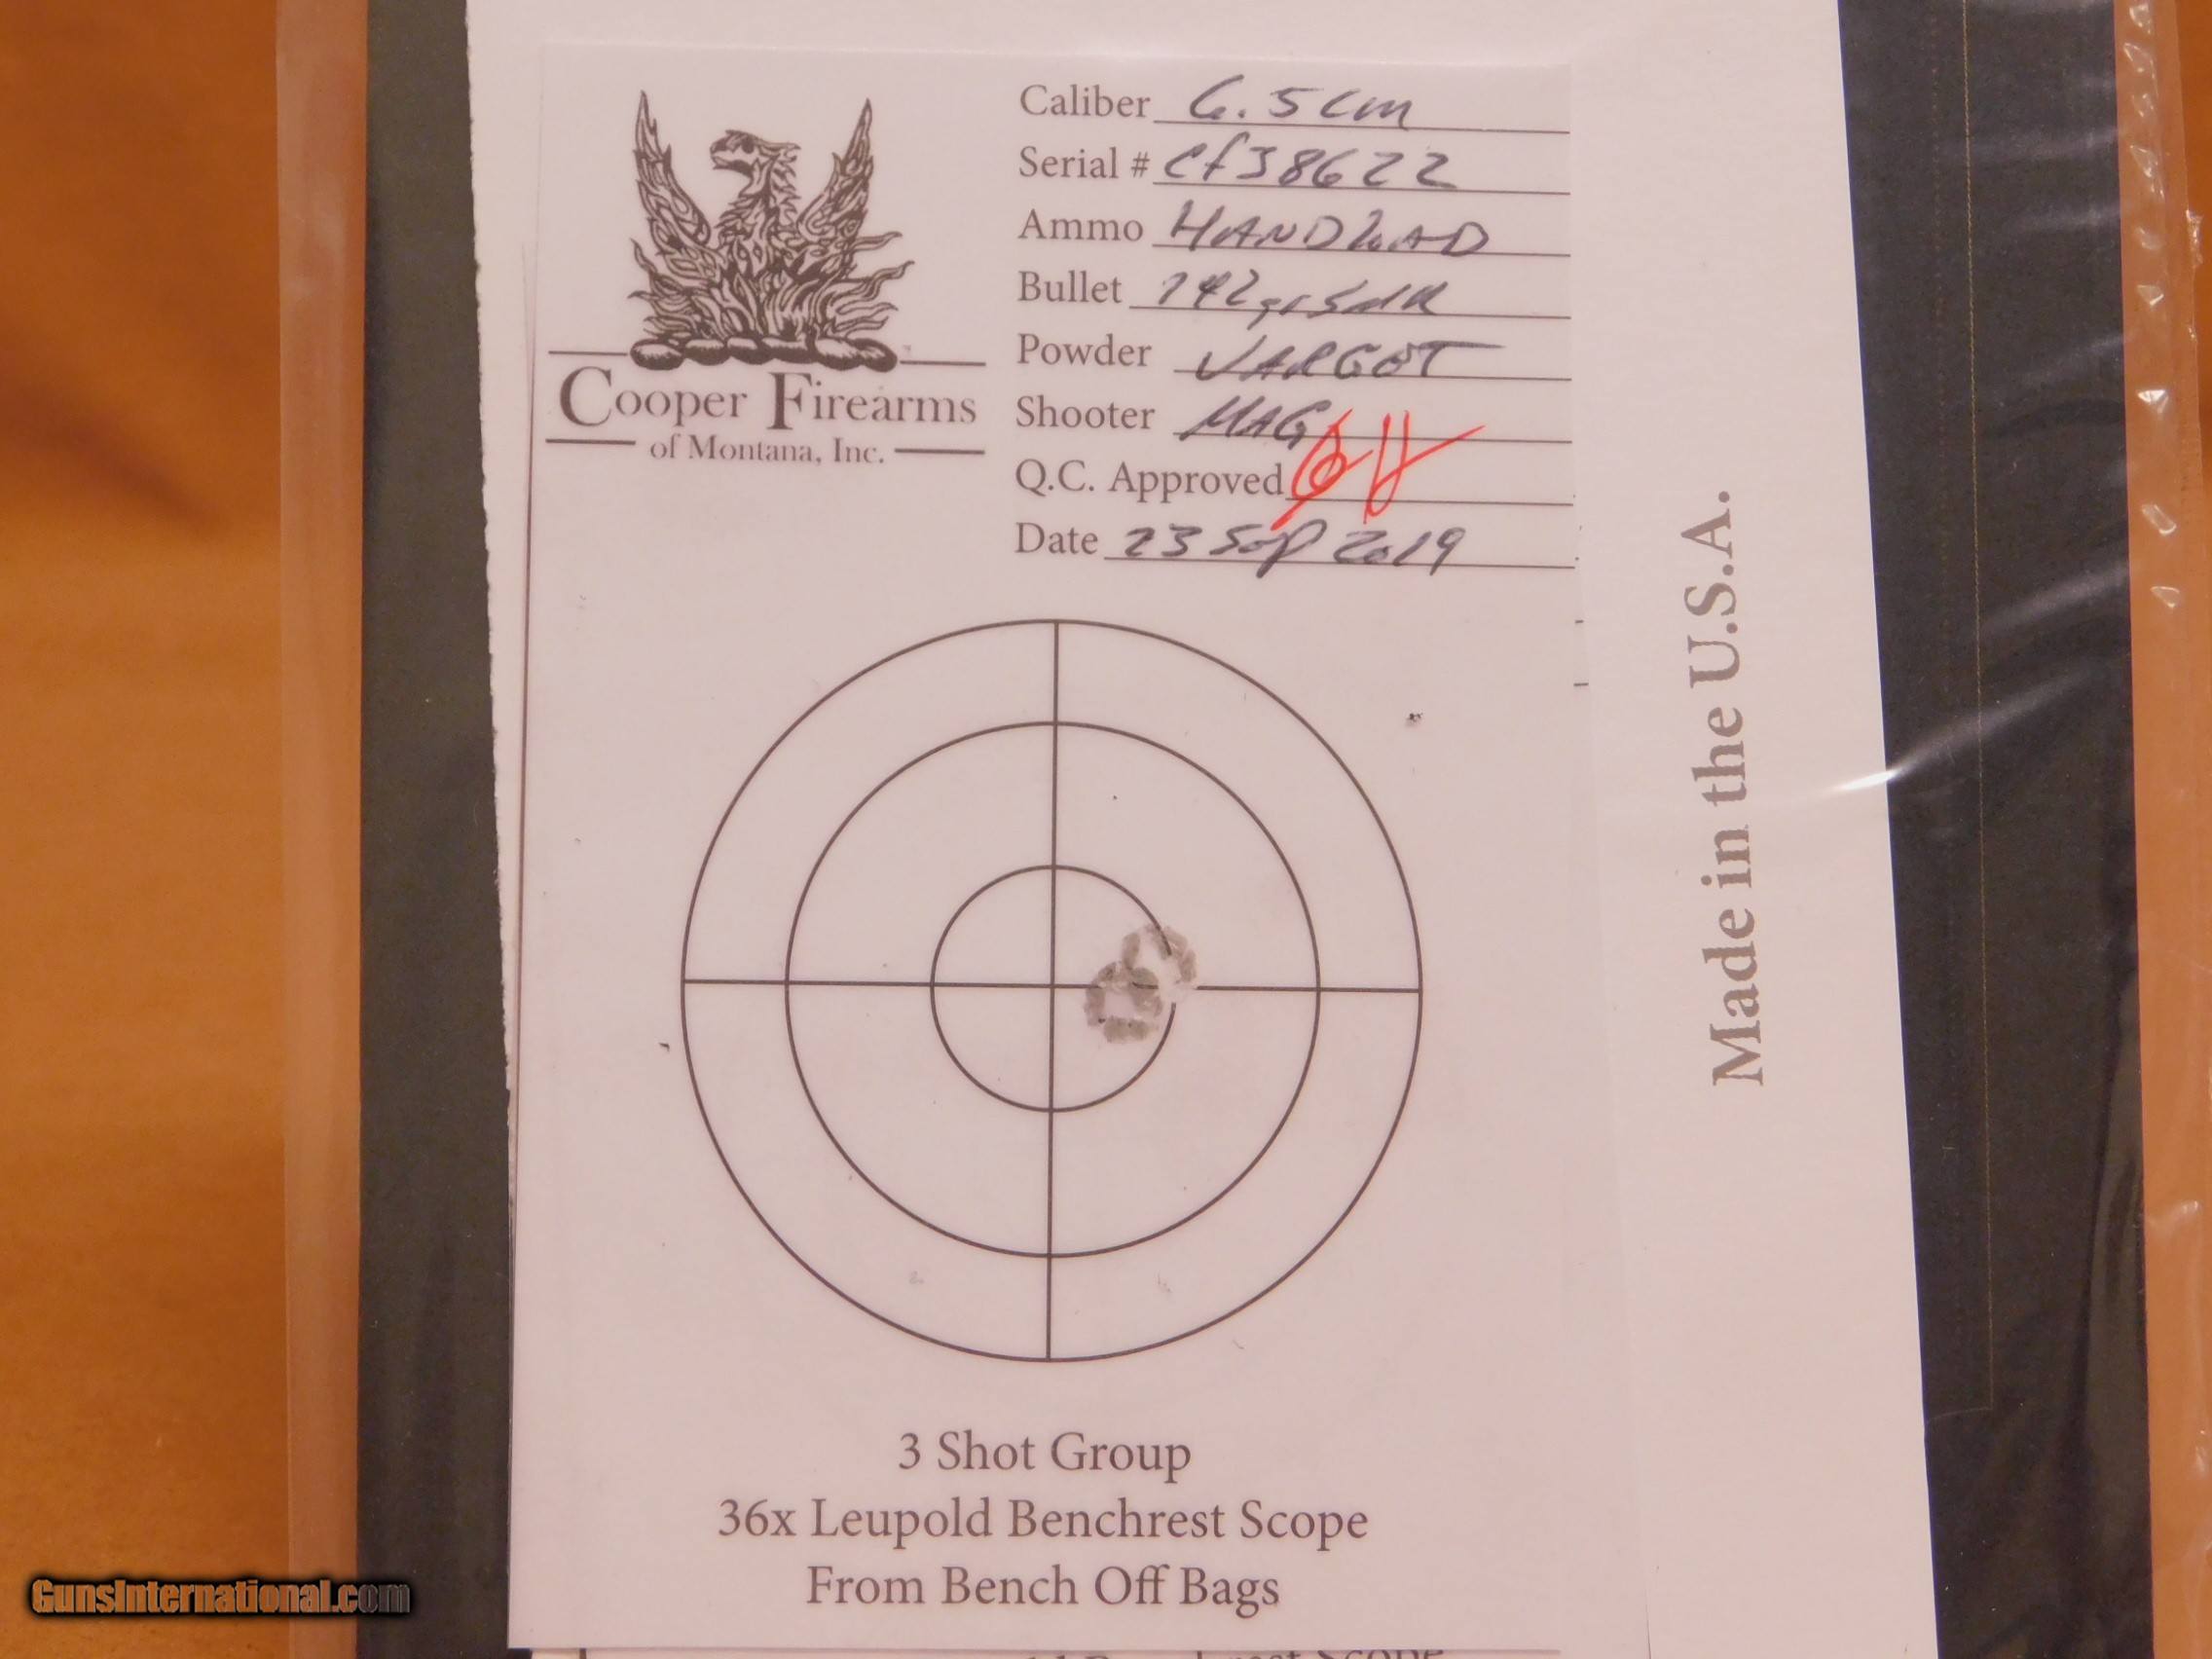 Caliber 6.5 cm
Serial # cf38622
Ammo HANDLOAD
Bullet 142gr
Powder VARGET
Shooter MAG
Q.C. Approved
Date 23 Sep 2019
Cooper Firearms
of Montana, Inc.
Made in the U.S.A.
3 Shot Group
36x Leupold Benchrest Scope
From Bench Off Bags
GunsInternational.com